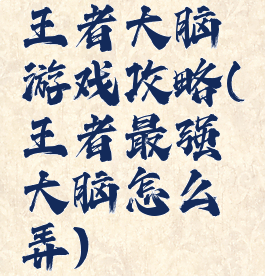 王者大脑
游戏攻略(
王者最强
大脑怎么
弄)